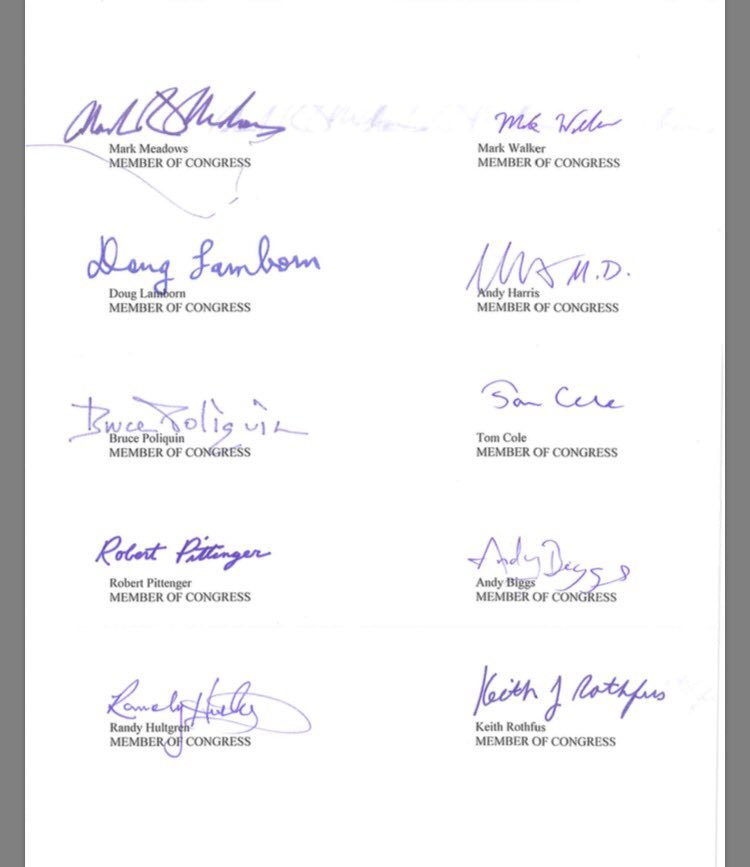 Mark R Meadows
Mark Walker
Mark Meadows
MEMBER OF CONGRESS
Mark Walker
MEMBER OF CONGRESS
Doug Lamborn
M.D.
Doug Lamborn
MEMBER OF CONGRESS
Andy Harris
MEMBER OF CONGRESS
Bruce Poliquin
Tom Cole
Bruce Poliquin
MEMBER OF CONGRESS
Tom Cole
MEMBER OF CONGRESS
Robert Pittenger
Andy Biggs
Robert Pittenger
MEMBER OF CONGRESS
Andy Biggs
MEMBER OF CONGRESS
Randy Hultgren
Keith J Rothfus
Randy Hultgren
MEMBER OF CONGRESS
Keith Rothfus
MEMBER OF CONGRESS